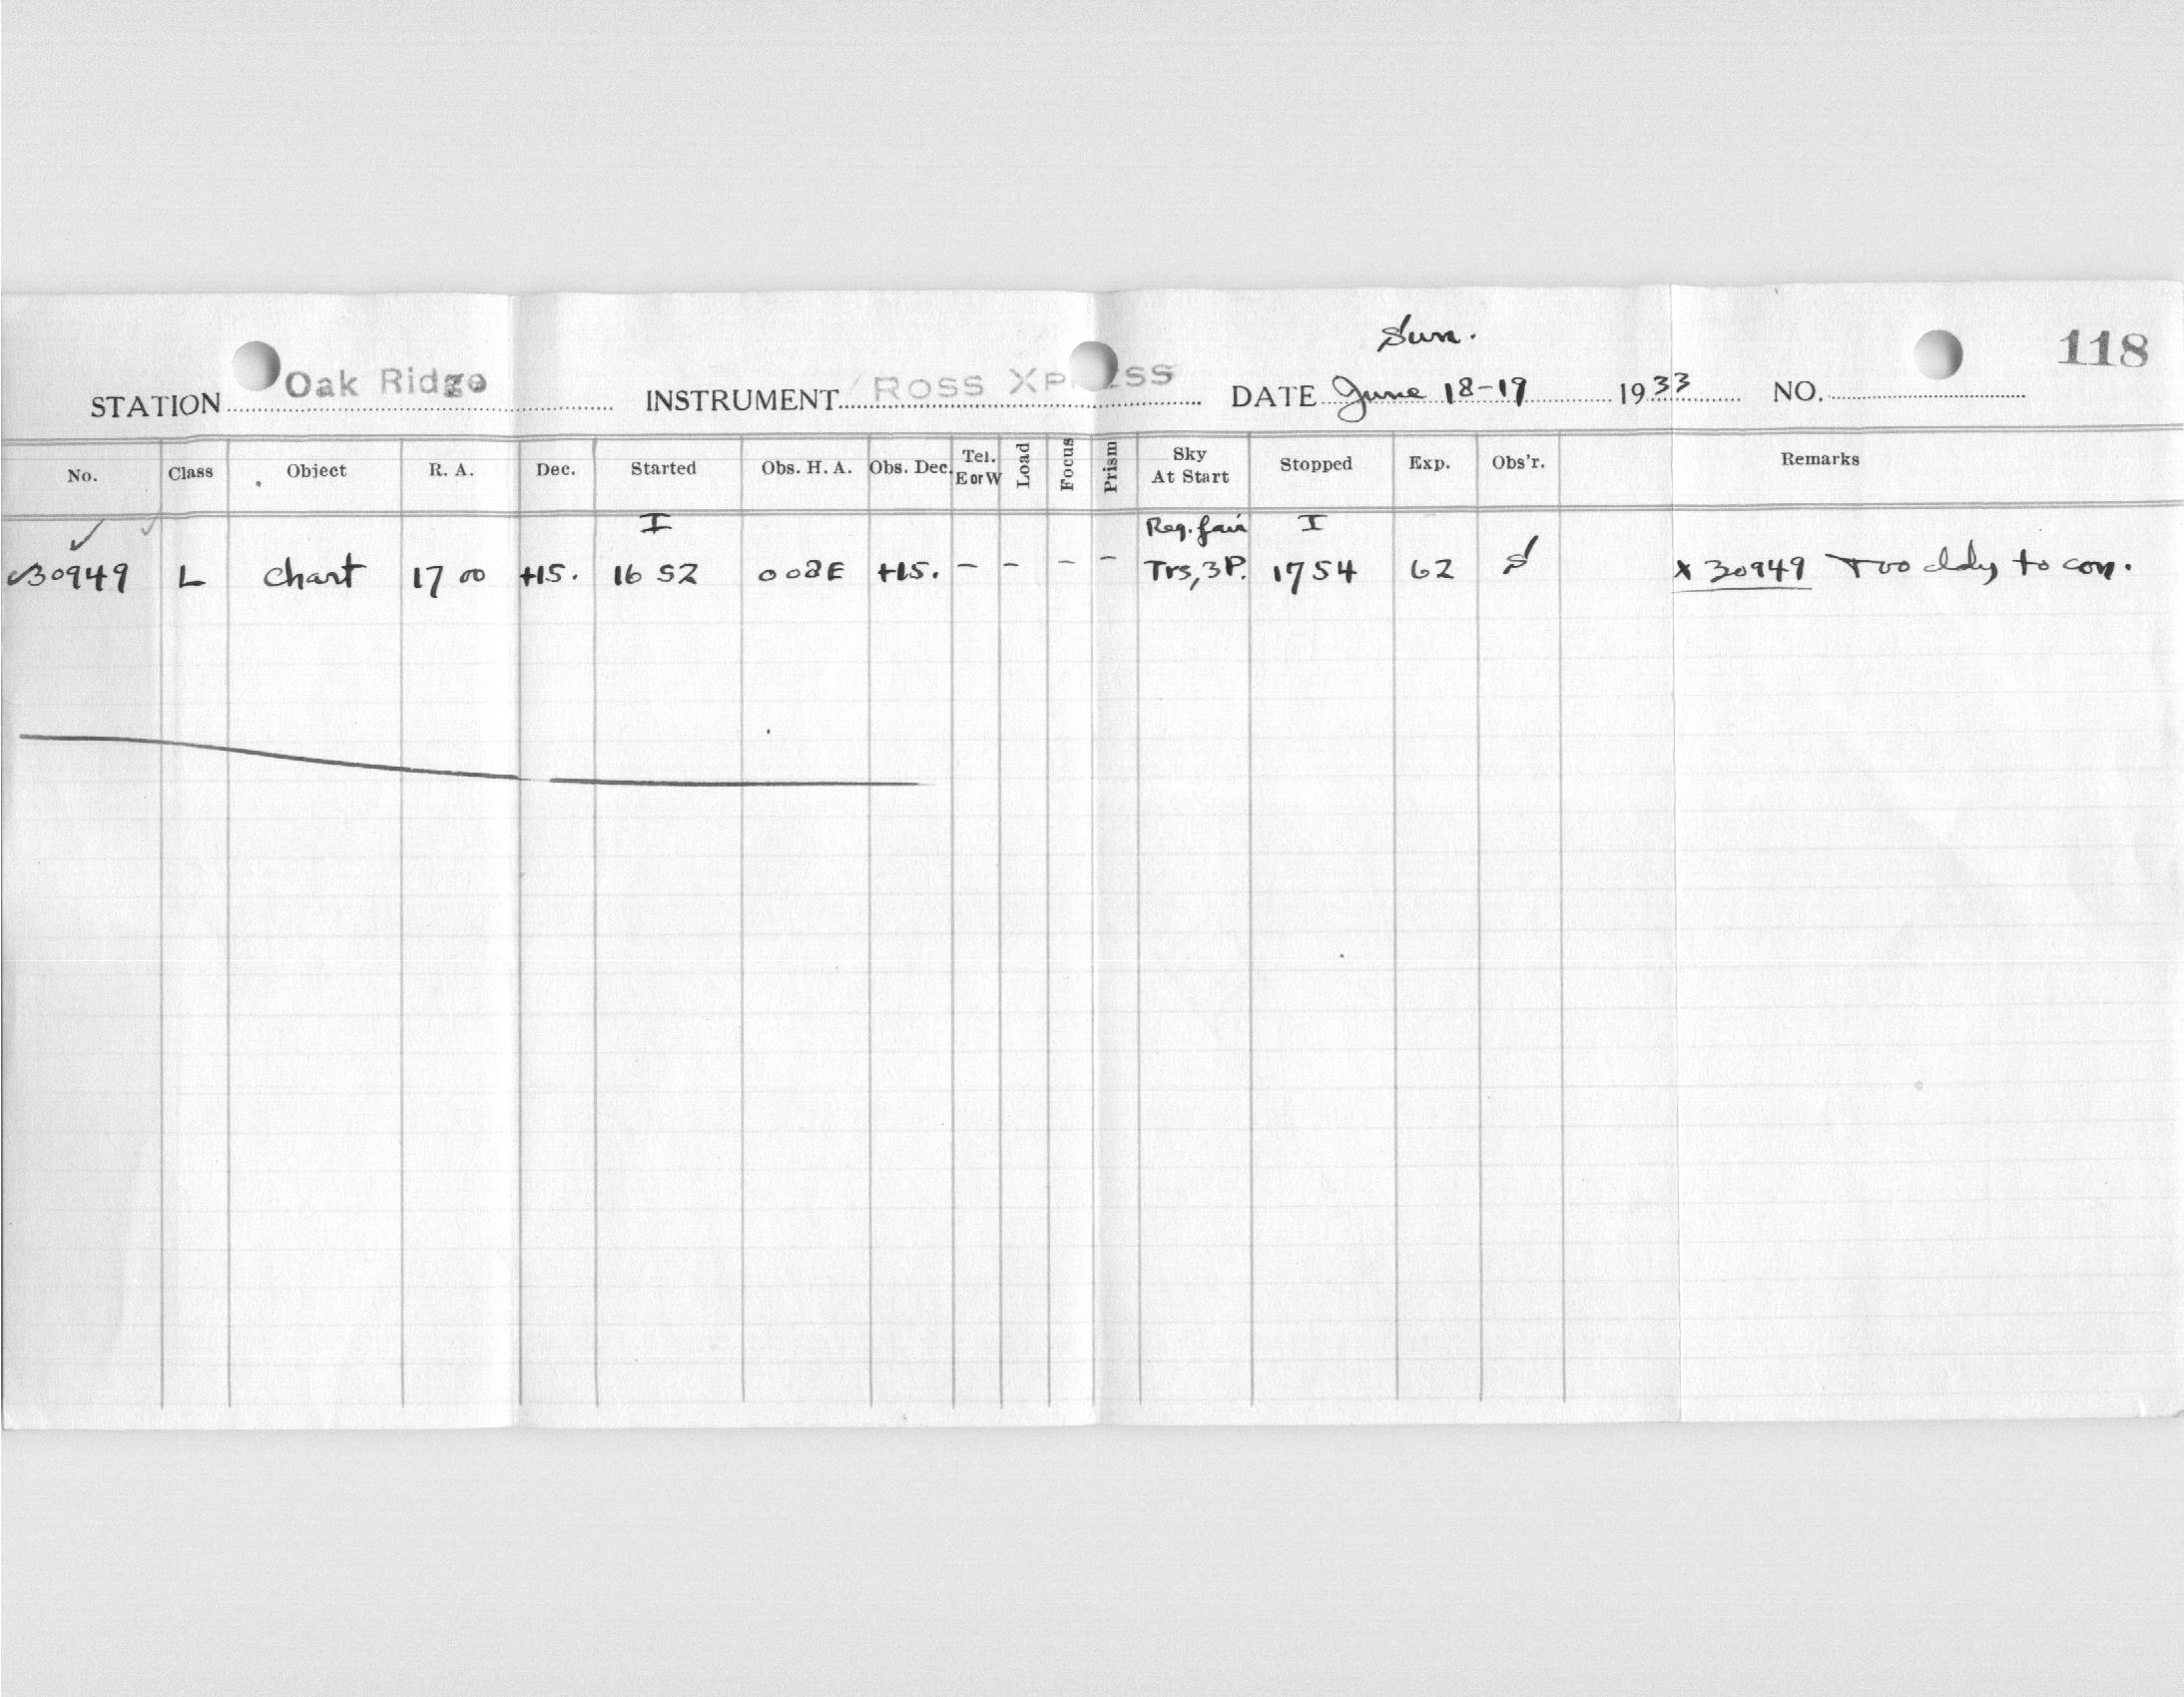 Sun.
118
STATION Oak Ridge INSTRUMENT ROSS XPRESS DATE June 18-19 1933 NO.
No. Class Object R. A. Dec. Started Obs. H. A. Obs. Dec. Tel. E or W Load Focus Prism Sky At Start Stopped Exp. Obs'r. Remarks
I Reg. fair I
✓30949 L Chart 17 00 +15. 16 52 0 08E +15. - - - - Trs, 3P. 17 54 62 S x 30949 Too cldy to con.